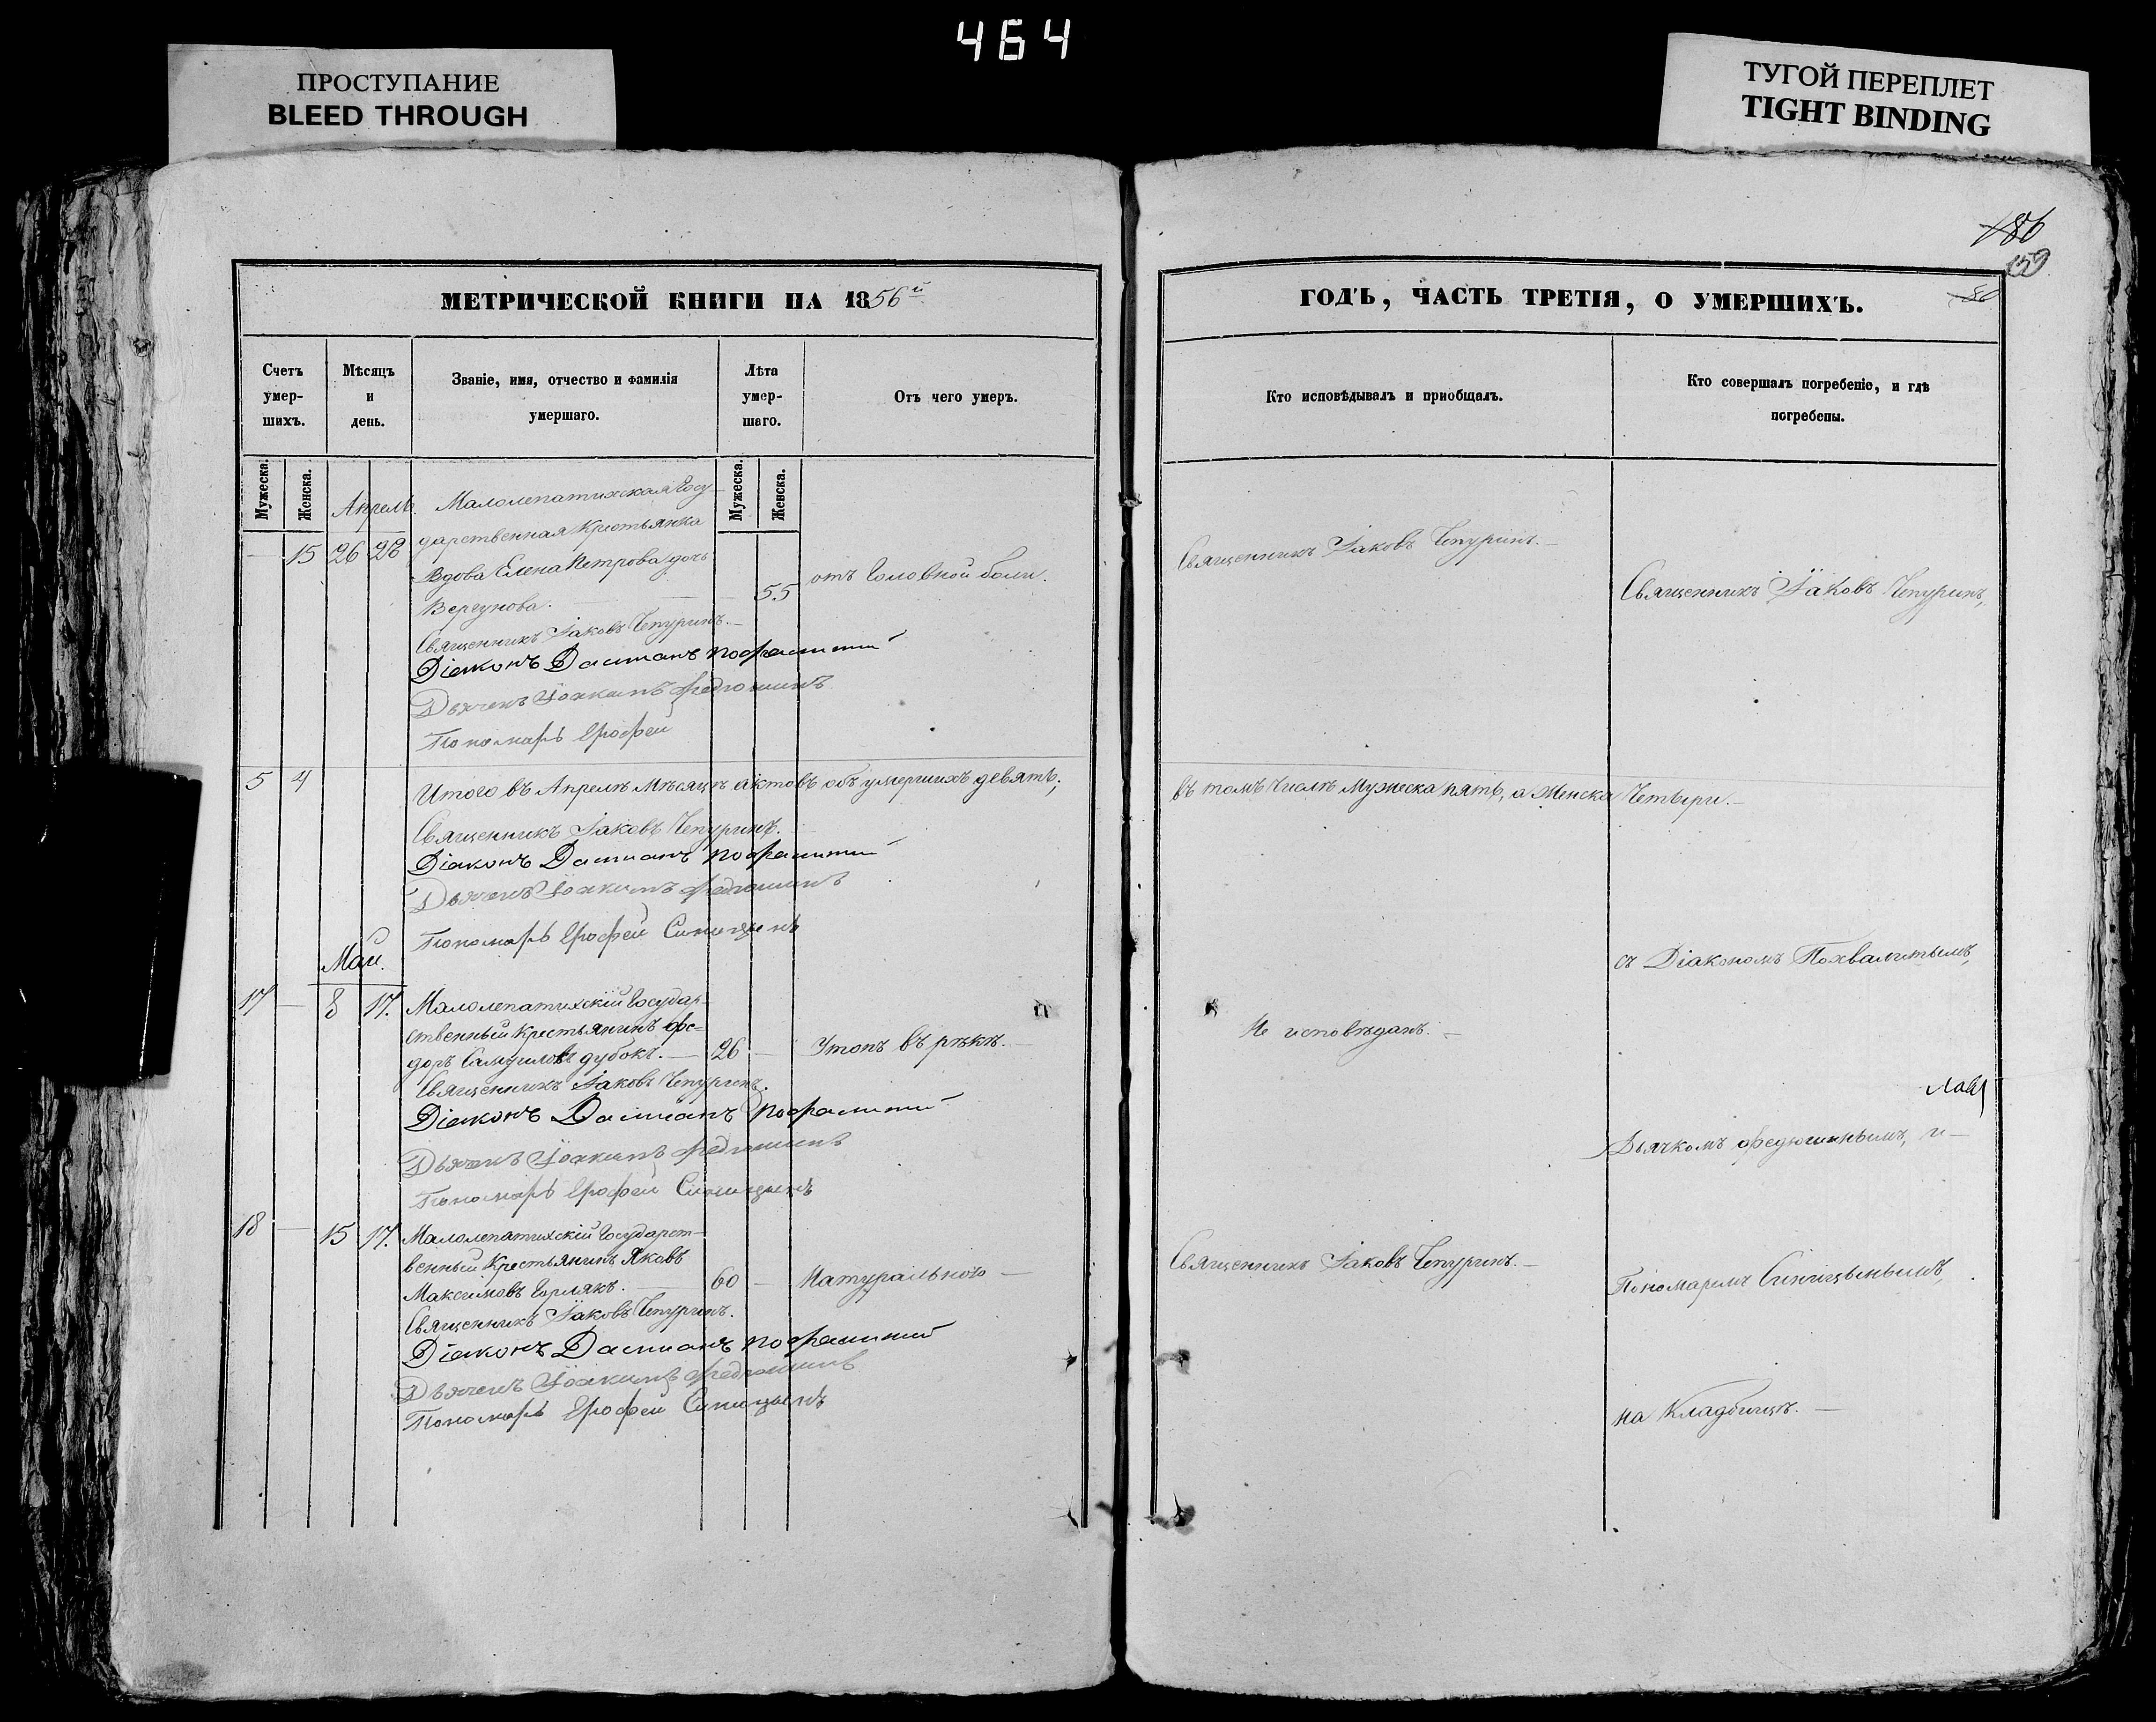 464
ПРОСТУПАНИЕ
BLEED THROUGH
ТУГОЙ ПЕРЕПЛЕТ
TIGHT BINDING
186
159
86
МЕТРИЧЕСКОЙ КНИГИ НА 1856й
Счетъ умер-шихъ.
Мѣсяцъ и день.
Званіе, имя, отчество и фамилія умершаго.
Лѣта умер-шаго.
Отъ чего умеръ.
Мужеска.
Женска.
Мужеска.
Женска.
Апрель.
Малолепатихская Госу-
дарственная Крестьянка
— 15 26 28
Вдова Елена Петрова дочь
Вергунова. — 55 отъ Головной боли.
Священникъ Іаковъ Чепуринъ. —
Діаконъ Дамианъ
Дьячекъ Іоакимъ Федюшинъ
Пономарь Ерофей
5 4 Итого въ Апрелѣ Мѣсяцѣ актовъ объ умершихъ девять;
Священникъ Іаковъ Чепуринъ.
Діаконъ Дамианъ
Дьячекъ Іоакимъ Федюшинъ
Пономарь Ерофей Синицынъ
Май.
17 — 8 17. Малолепатихскій Государ-
ственный Крестьянинъ Фе=
доръ Самуиловъ Дубокъ. — 26 — Утопъ въ рѣкѣ. —
Священникъ Іаковъ Чепуринъ.
Діаконъ Дамианъ
Дьячекъ Іоакимъ Федюшинъ
Пономарь Ерофей Синицынъ
18 — 15 17. Малолепатихскій Государст-
венный Крестьянинъ Яковъ
Максимовъ Горлякъ. — 60 — Натуральною —
Священникъ Іаковъ Чепуринъ.
Діаконъ Дамианъ
Дьячекъ Іоакимъ Федюшинъ
Пономарь Ерофей Синицынъ
ГОДЪ, ЧАСТЬ ТРЕТІЯ, О УМЕРШИХЪ.
Кто исповѣдывалъ и приобщалъ.
Кто совершалъ погребеніе, и гдѣ
погребены.
Священникъ Іаковъ Чепуринъ. —
Священникъ Іаковъ Чепуринъ,
въ томъ числѣ Мужеска пять, а Женска Четыри. —
съ Діакономъ Похвалитымъ,
Не исповѣданъ. —
Дьячкомъ Федюшинымъ, и —
Священникъ Іаковъ Чепуринъ. —
Пономаремъ Синицынымъ,
на Кладбищѣ. —